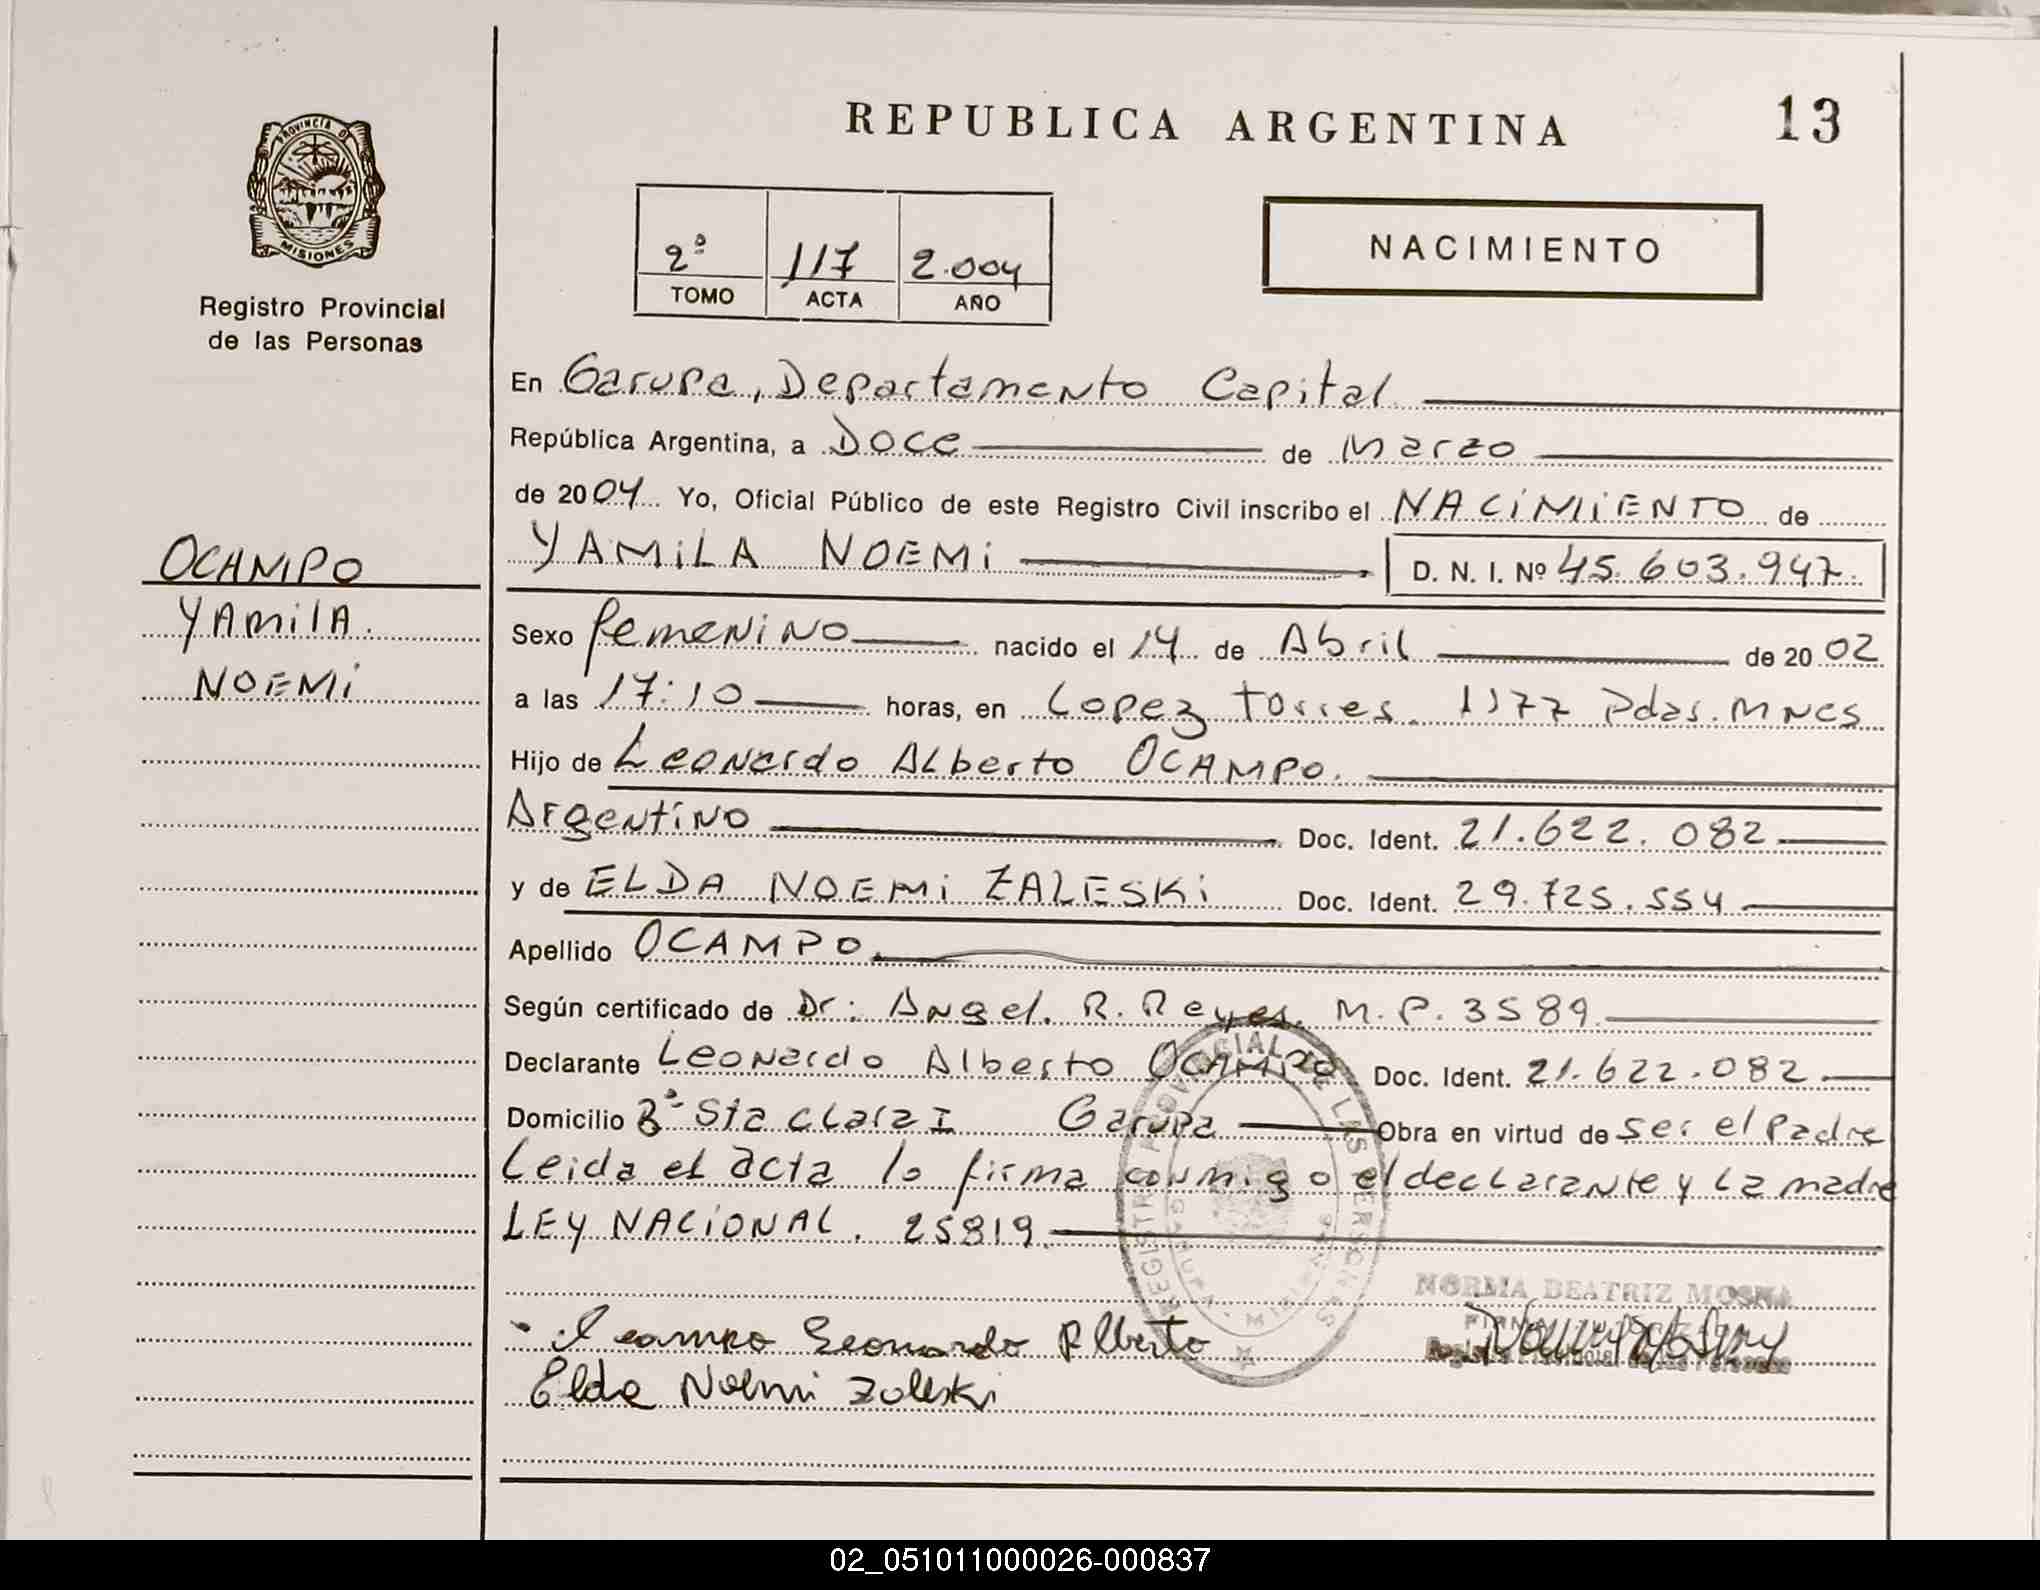 REPUBLICA ARGENTINA
13
PROVINCIA D
MISIONES
Registro Provincial
de las Personas
2º 117 2.004
TOMO ACTA AÑO
NACIMIENTO
En Garupa, Departamento Capital
República Argentina, a Doce de Marzo
de 2004 Yo, Oficial Público de este Registro Civil inscribo el NACIMIENTO de
YAMILA NOEMI D. N. I. Nº 45.603.947.
OCAMPO
YAMILA
NOEMI
Sexo femenino nacido el 14 de Abril de 2002
a las 17:10 horas, en Lopez Torres 1177 Pdas. Mnes
Hijo de Leonardo Alberto OCAMPO.
Argentino Doc. Ident. 21.622.082
y de ELDA NOEMI ZALESKI Doc. Ident. 29.725.554
Apellido OCAMPO
Según certificado de Dr: Angel. R. Reyes. M.P. 3589
Declarante Leonardo Alberto OCAMPO Doc. Ident. 21.622.082
Domicilio Bº Sta Clara I Garupa Obra en virtud de ser el Padre
Leida el acta lo firma conmigo el declarante y la madre
LEY NACIONAL. 25819
REGISTRO PROVINCIAL DE LAS PERSONAS
GARUPA MISIONES
NORMA BEATRIZ MOSNA
Registro Provincial de las Personas
Ocampo Leonardo Alberto
Elda Noemi Zaleski
02_051011000026-000837